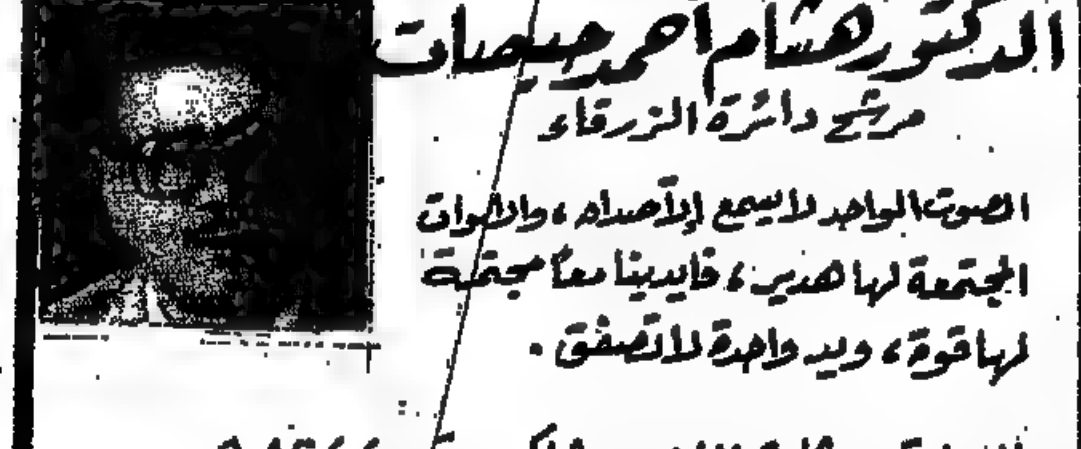 الدكتور هشام أحمد جيصات
مرشح دائرة الزرقاء
الصوت الواحد لا يسمع إلاّ صداه ، والاصوات
المجتمعة لها هدير ، فايدينا معاً مجتمعة
لها قوة ، ويد واحدة لا تصفق .